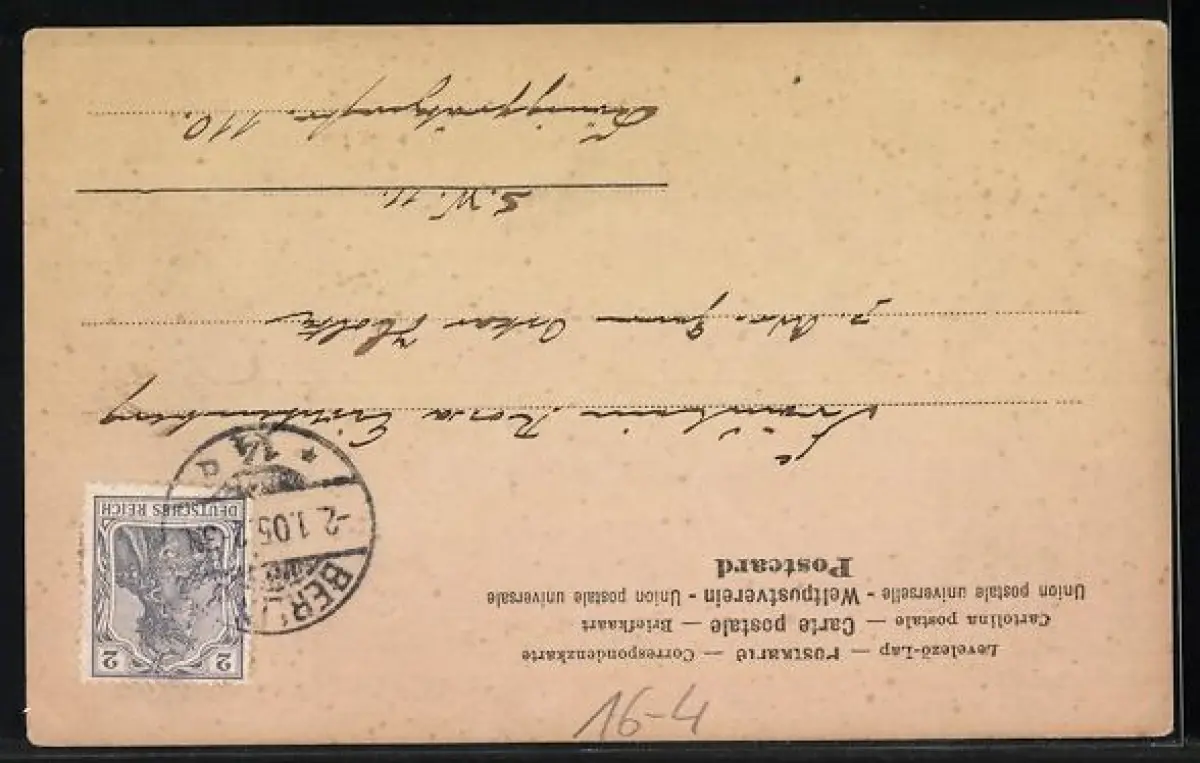 Levelező-Lap — Postkarte — Correspondenzkarte
Cartolina postale — Carte postale — Briefkaart
Union postale universelle - Weltpostverein - Union postale universale
Postcard
2 2
DEUTSCHES REICH
BERLIN
-2.1.05.
Fräulein Rosa
Oskar
S.W. 11.
110.
16-4